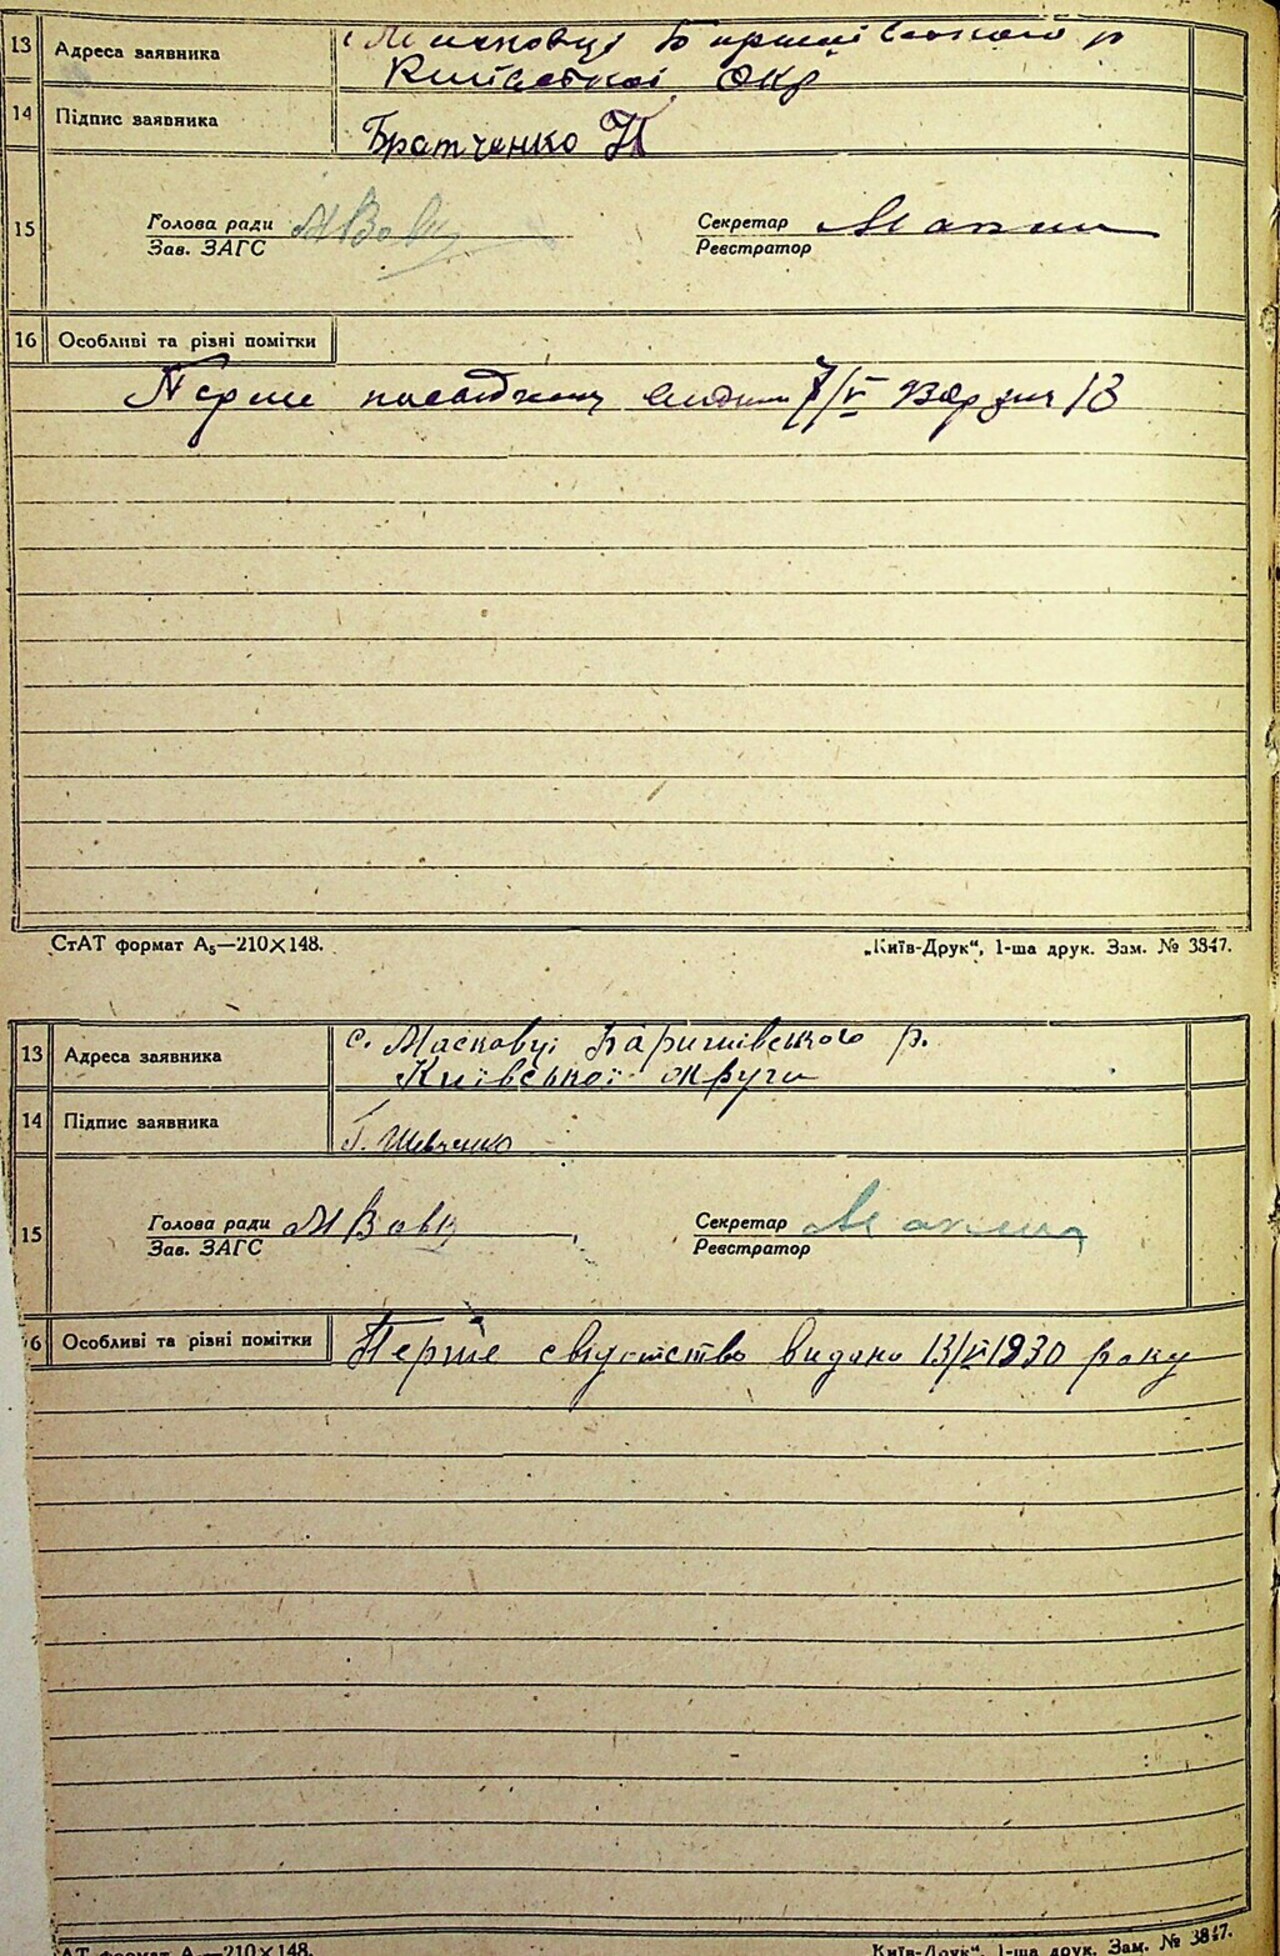 13 Адреса заявника с. Масковці Баришівського р
Київської окр
14 Підпис заявника Братченко Н
15 Голова ради МВовк Секретар
Зав. ЗАГС Реєстратор
16 Особливі та різні помітки
Перше видано 7/V
СтАТ формат А₅—210×148. „Київ-Друк“, 1-ша друк. Зам. № 3847.
13 Адреса заявника с. Масковці Баришівського р.
Київської округи
14 Підпис заявника Г. Шевченко
15 Голова ради МВовк Секретар
Зав. ЗАГС Реєстратор
6 Особливі та різні помітки Перше свідотство видано 13/VI 1930 року
АТ формат А₅—210×148. Київ-Друк“, 1-ша друк. Зам. № 3847.